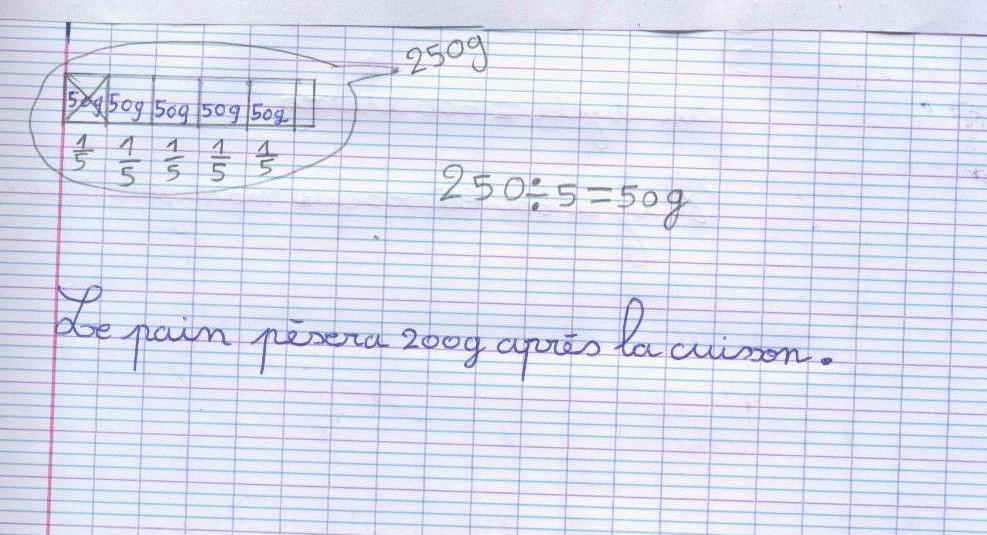 250g
50g 50g 50g 50g 50g
1/5 1/5 1/5 1/5 1/5
250÷5=50g
Le pain pèsera 200g après la cuisson.